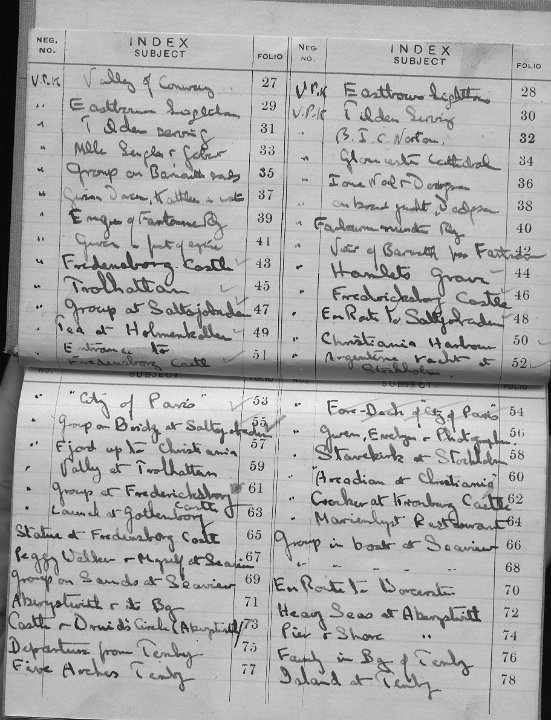 NEG. NO. INDEX SUBJECT FOLIO
V.P.K Valley of Conway 27
" Eastbourne 29
" Tilden serving 31
" Mlle & 33
" Group on Barmouth sands 35
" Gwen 37
" Engine of Fairbourne Ry 39
" Gwen in front of engine 41
" Fredensborg Castle 43
" Trolhattan 45
" Group at Saltsjobaden 47
" Tea at Holmenkollen 49
" Entrance to
Fredensborg Castle 51
NEG NO. INDEX SUBJECT FOLIO
V.P.K Eastbourne 28
V.P.K Tilden Serving 30
" B.I.C Norton. 32
" Gloucester Cathedral 34
" Ione Noel & 36
" on board yacht, 38
" Fairbourne Ry 40
" View of Barmouth from 42
" Hamlets Grave 44
" Fredericksborg Castle 46
" En Route to Saltsjobaden 48
" Christiania Harbour 50
" Argentine Yacht at
Stockholm 52
SUBJECT
" "City of Paris" 53
" Group on Bridge at Saltsjobaden 55
" Fjord up to Christiania 57
" Valley at Trolhattan 59
" Group at Fredericksborg
Castle 61
" Launch at Gothenborg 63
Statue at Fredensborg Castle 65
Peggy Walker & Myself at Seaview 67
Group on Sands at Seaview 69
Aberystwith & its Bay 71
Castle & Druid's Circle (Aberystwith) 73
Departure from Tenby 75
Five Arches Tenby 77
SUBJECT
" Fore-Deck of "City of Paris" 54
" Gwen, Evelyn & Photographer 56
" Stavekirk at Stockholm 58
" "Arcadian at Christiania 60
" at Kronburg Castle 62
" Marienlyst Restaurant 64
Group in boat at Seaview 66
" " " " " 68
En Route to Worcester 70
Heavy Seas at Aberystwith 72
Pier & Shore " 74
Family in Bay of Tenby 76
Island at Tenby 78